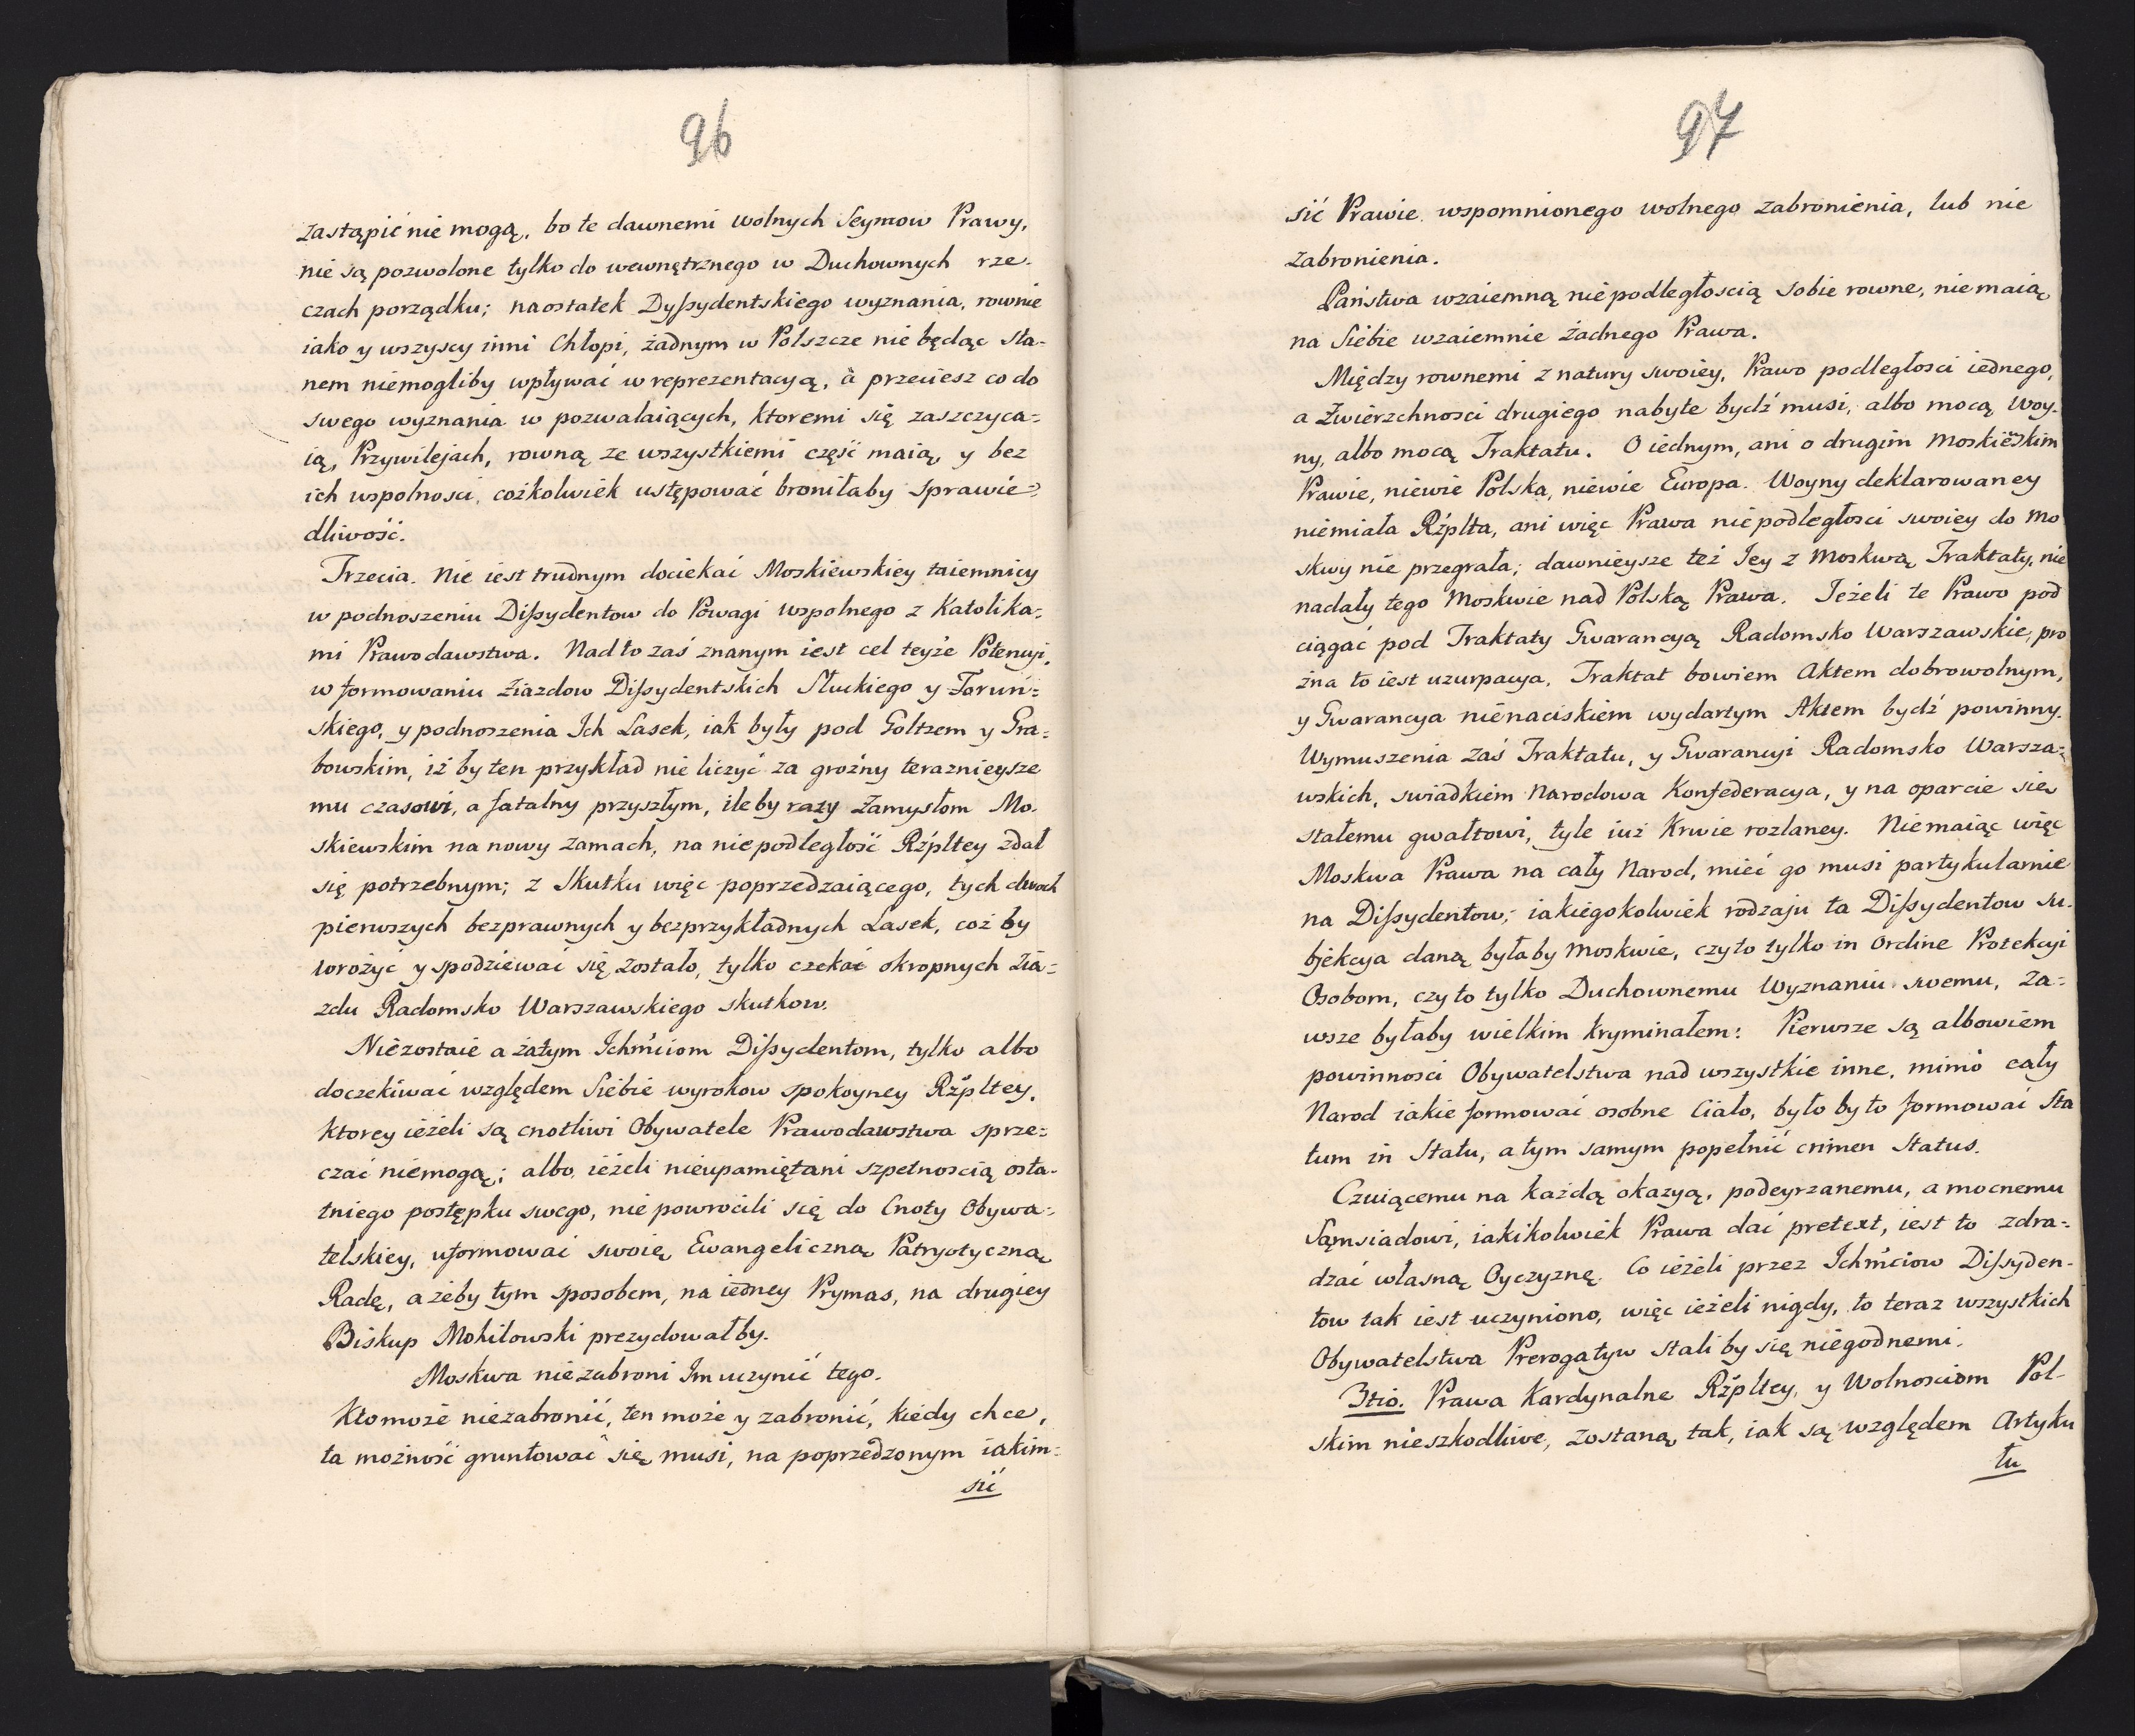 96
zastąpić nie mogą, bo te dawnemi wolnych Seymow Prawy,
nie są pozwolone tylko do wewnętrznego w Duchownych rze-
czach porządku; naostatek Dyssydentskiego wyznania, rownie
iako y wszyscy inni Chłopi, żadnym w Polszcze nie będąc sta-
nem niemogliby wpływać w reprezentacyą, à przeciesz co do
swego wyznania w pozwalaiących, ktoremi się zaszczyca=
ią, Przywilejach, rowną ze wszystkiemi część maią, y bez
ich wspolnosci, cożkolwiek ustępować broniłaby sprawie=
dliwość.
Trzecia. Nie iest trudnym dociekać Moskiewskiey taiemnicy
w podnoszeniu Dissydentow do Powagi wspolnego z Katolika=
mi Prawodawstwa. Nad to zaś znanym iest cel teyże Potencyi,
w formowaniu Ziazdow Dissydentskich Słuckiego y Toruń=
skiego, y podnoszenia Ich Lasek, iak były pod Goltzem y Gra=
bowskim, iż by ten przykład nie liczyć za groźny teraznieysze
mu czasowi, a fatalny przyszłym, ile by razy Zamysłom Mo-
skiewskim na nowy zamach, na niepodległość Rżpltey zdał
się potrzebnym; z Skutku więc poprzedzaiącego, tych dwoch
pierwszych bezprawnych y bezprzykładnych Lasek, coż by
wrożyć y spodziewać się zostało, tylko czekać okropnych Zia=
zdu Radomsko Warszawskiego skutkow.
Niezostaie a zatym Ichmciom Dissydentom, tylko albo
doczekiwać względem Siebie wyrokow spokoyney Rżpltey,
ktorey ieżeli są cnotliwi Obywatele Prawodawstwa sprze=
czać niemogą; albo, ieżeli nieupamiętani szpetnoscią osta-
tniego postępku swego, nie powrocili się do Cnoty Obywa=
telskiey, uformować swoię Ewangeliczną Patryotyczną
Radę, ażeby tym sposobem, na iedney Prymas, na drugiey
Biskup Mohilowski prezydowałby.
Moskwa niezabroni Im uczynić tego.
Kto może niezabronić, ten może y zabronić, kiedy chce,
ta możność gruntować się musi, na poprzedzonym iakim=
sić
97
sić Prawie wspomnionego wolnego zabronienia, lub nie
zabronienia.
Państwa wzaiemną niepodległoscią sobie rowne, nie maią
na Siebie wzaiemnie żadnego Prawa.
Między rownemi z natury swoiey, Prawo podległosci iednego,
a Zwierzchnosci drugiego nabyte bydź musi, albo mocą Woy-
ny, albo mocą Traktatu. O iednym, ani o drugim Moskieskim
Prawie, niewie Polska, niewie Europa. Woyny deklarowaney
niemiała Rżplta, ani więc Prawa niepodległosci swoiey do Mo
skwy nie przegrała; dawnieysze też Jey z Moskwą Traktaty, nie
nadały tego Moskwie nad Polską Prawa. Jeżeli te Prawo pod
ciągać pod Traktaty Gwarancyą Radomsko Warszawskie, pro
żna to iest uzurpacya, Traktat bowiem Aktem dobrowolnym,
y Gwarancya nienaciskiem wydartym Aktem bydź powinny.
Wymuszenia zaś Traktatu, y Gwarancyi Radomsko Warsza=
wskich, swiadkiem Narodowa Konfederacya, y na oparcie się
stałemu gwałtowi, tyle iuż Krwie rozlaney. Niemaiąc więc
Moskwa Prawa na cały Narod, mieć go musi partykularnie
na Dissydentow; iakiegokolwiek rodzaju ta Dissydentow su-
bjekcya daną byłaby Moskwie, czy to tylko in ordine Protekcyi
Osobom, czy to tylko Duchownemu Wyznaniu swemu, za=
wsze byłaby wielkim kryminałem: Pierwsze są albowiem
powinnosci Obywatelstwa nad wszystkie inne, mimo cały
Narod iakie formować osobne Ciało, było by to formować Sta
tum in Statu, a tym samym popełnić crimen Status.
Czuiącemu na każdą okazyą, podeyrzanemu, a mocnemu
Sąmsiadowi, iakikolwiek Prawa dać pretext, iest to zdra=
dzać własną Oyczyznę. Co ieżeli przez Ichmciow Dissyden-
tow tak iest uczyniono, więc ieżeli nigdy, to teraz wszystkich
Obywatelstwa Prerogatyw stali by się niegodnemi.
3tio. Prawa Kardynalne Rżpltey, y Wolnosciom Pol-
skim nieszkodliwe, zostaną tak, iak są względem Artyku
łu